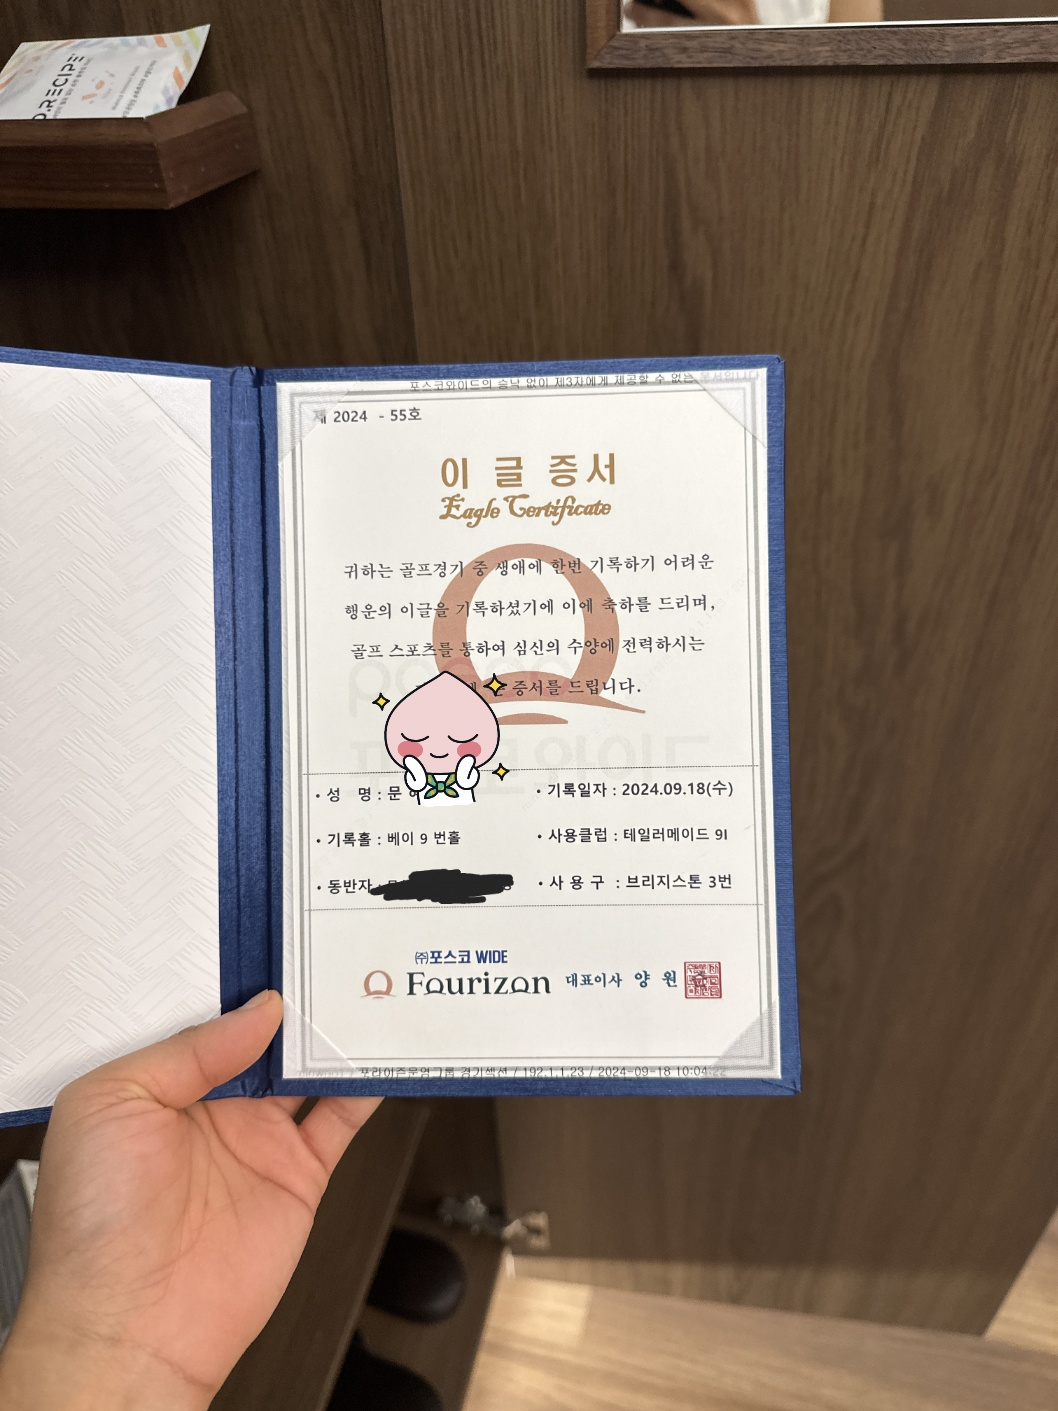 RECIPE
포스코와이드의 승낙 없이 제3자에게 제공할 수 없는 문서입니다
제 2024 - 55호
이 글 증서
Eagle Certificate
귀하는 골프경기 중 생애에 한번 기록하기 어려운
행운의 이글을 기록하셨기에 이에 축하를 드리며,
골프 스포츠를 통하여 심신의 수양에 전력하시는
증서를 드립니다.
posco
포스코와이드
• 성 명 : 문
• 기록일자 : 2024.09.18(수)
• 기록홀 : 베이 9 번홀
• 사용클럽 : 테일러메이드 9I
• 동반자 :
• 사 용 구 : 브리지스톤 3번
㈜포스코 WIDE
Fourizon 대표이사 양 원
포라이즌운영그룹 경기섹션 / 192.1.1.23 / 2024-09-18 10:04:22